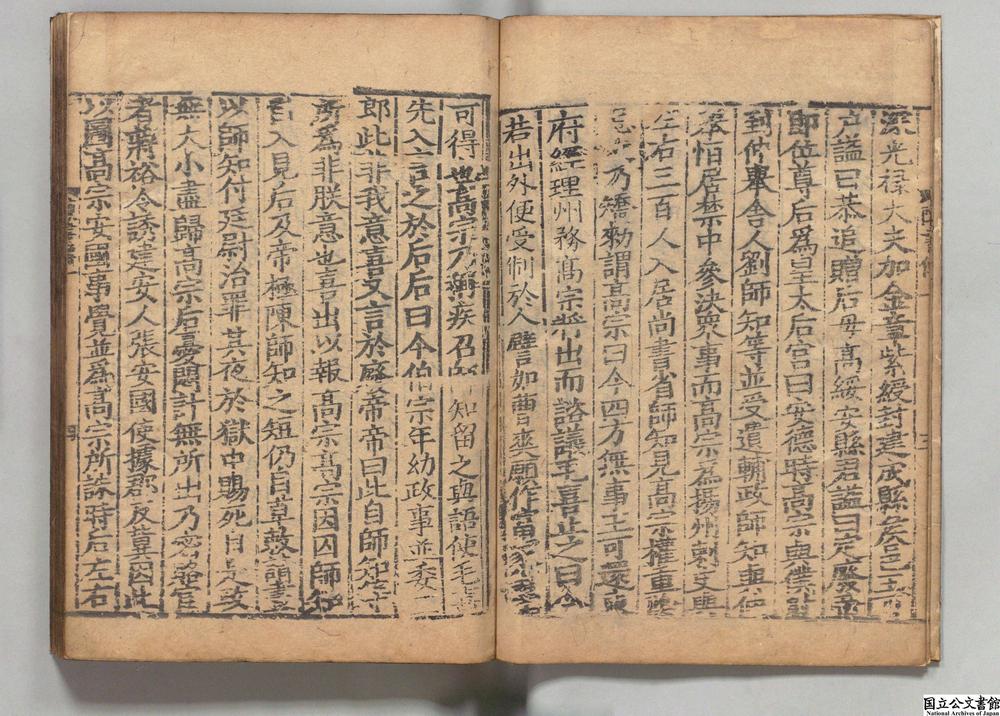 光祿大夫加金章紫綬封建成縣矦邑五
謚曰恭追贈后母高綏安縣君謚曰定廢帝
即位尊后爲皇太后宮曰安德時高宗與僕射
到仲舉舍人劉師知等並受遺輔政師知與仲
恒居禁中參決衆事而高宗爲揚州刺史與
左右三百人入居尚書省師知見高宗權重陰
忌之乃矯勑謂高宗曰今四方無事王可還東
府經理州務高宗將出而諮議毛喜止之曰今
若出外便受制於人譬如曹爽願作富家翁不
可得也高宗乃稱疾召師知留之與語使毛喜
先入言之於后后曰今伯宗年幼政事並委二
郎此非我意喜又言於廢帝帝曰此自師知等
所爲非朕意也喜出以報高宗高宗因囚師知
自入見后及帝極陳師知之短仍自草敕請畫
以師知付廷尉治罪其夜於獄中賜死自是政
無大小盡歸高宗后憂悶計無所出乃密賂宦
者蔣裕令誘建安人張安國使據郡反冀因此
以圖高宗安國事覺並爲高宗所誅時后左右
国立公文書館
National Archives of Japan